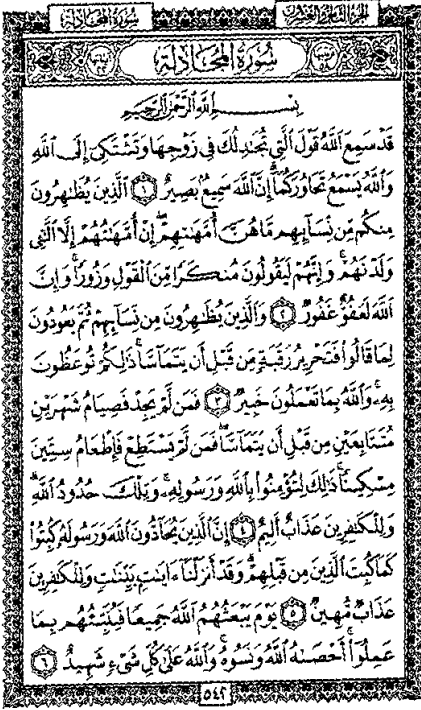 سُورَةُ المُجَادلة
الجزء الثامن والعشرون
سُورَةُ المُجَادلَةِ
بِسْمِ ٱللَّهِ ٱلرَّحْمَٰنِ ٱلرَّحِيمِ
قَدْ سَمِعَ ٱللَّهُ قَوْلَ ٱلَّتِي تُجَٰدِلُكَ فِي زَوْجِهَا وَتَشْتَكِىٓ إِلَى ٱللَّهِ
وَٱللَّهُ يَسْمَعُ تَحَاوُرَكُمَآ إِنَّ ٱللَّهَ سَمِيعٌۢ بَصِيرٌ ١ ٱلَّذِينَ يُظَٰهِرُونَ
مِنكُم مِّن نِّسَآئِهِم مَّا هُنَّ أُمَّهَٰتِهِمْ ۖ إِنْ أُمَّهَٰتُهُمْ إِلَّا ٱلَّٰٓـِٔي
وَلَدْنَهُمْ ۚ وَإِنَّهُمْ لَيَقُولُونَ مُنكَرًا مِّنَ ٱلْقَوْلِ وَزُورًا ۚ وَإِنَّ
ٱللَّهَ لَعَفُوٌّ غَفُورٌ ٢ وَٱلَّذِينَ يُظَٰهِرُونَ مِن نِّسَآئِهِمْ ثُمَّ يَعُودُونَ
لِمَا قَالُوا۟ فَتَحْرِيرُ رَقَبَةٍ مِّن قَبْلِ أَن يَتَمَآسَّا ۚ ذَٰلِكُمْ تُوعَظُونَ
بِهِۦ ۚ وَٱللَّهُ بِمَا تَعْمَلُونَ خَبِيرٌ ٣ فَمَن لَّمْ يَجِدْ فَصِيَامُ شَهْرَيْنِ
مُتَتَابِعَيْنِ مِن قَبْلِ أَن يَتَمَآسَّا ۖ فَمَن لَّمْ يَسْتَطِعْ فَإِطْعَامُ سِتِّينَ
مِسْكِينًا ۚ ذَٰلِكَ لِتُؤْمِنُوا۟ بِٱللَّهِ وَرَسُولِهِۦ ۚ وَتِلْكَ حُدُودُ ٱللَّهِ ۗ
وَلِلْكَٰفِرِينَ عَذَابٌ أَلِيمٌ ٤ إِنَّ ٱلَّذِينَ يُحَآدُّونَ ٱللَّهَ وَرَسُولَهُۥ كُبِتُوا۟
كَمَا كُبِتَ ٱلَّذِينَ مِن قَبْلِهِمْ ۚ وَقَدْ أَنزَلْنَآ ءَايَٰتٍۭ بَيِّنَٰتٍ ۚ وَلِلْكَٰفِرِينَ
عَذَابٌ مُّهِينٌ ٥ يَوْمَ يَبْعَثُهُمُ ٱللَّهُ جَمِيعًا فَيُنَبِّئُهُم بِمَا
عَمِلُوٓا۟ ۚ أَحْصَىٰهُ ٱللَّهُ وَنَسُوهُ ۚ وَٱللَّهُ عَلَىٰ كُلِّ شَىْءٍ شَهِيدٌ ٦
٥٤٢